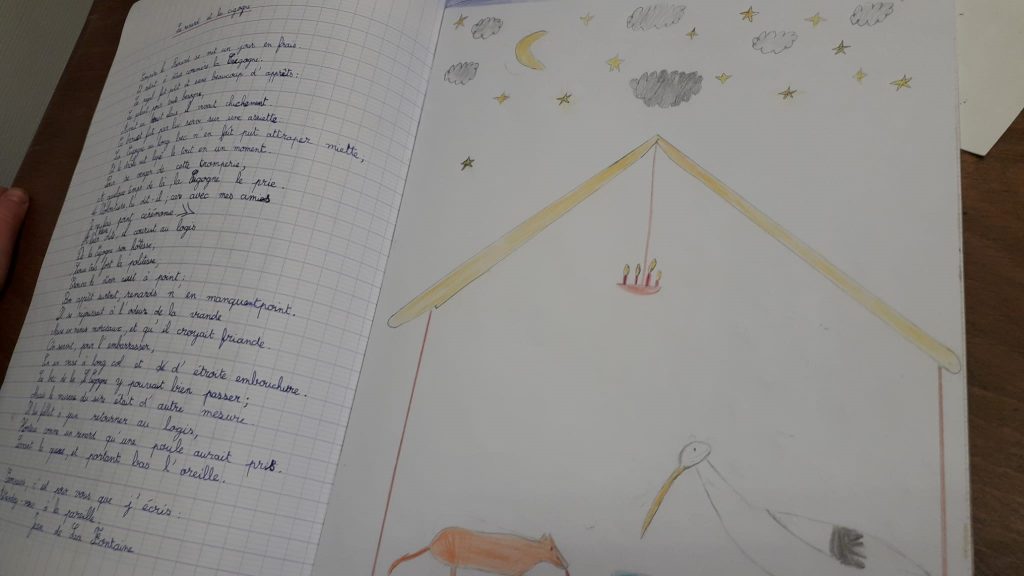 Le renard et la cigogne
Compère le Renard se mit un jour en frais
Et retint à dîner commère la Cigogne.
Le régal fut petit et sans beaucoup d'apprêts:
Le galant pour toute besogne,
Avait un brouet clair il vivait chichement.
Ce brouet fut par lui servi sur une assiette
La Cigogne au long bec n'en put attraper miette,
Et le drôle eut lapé le tout en un moment.
Pour se venger de cette tromperie,
A quelque temps de là, la Cigogne le prie.
lui dit-il, car avec mes amis
Je ne fais point cérémonie
il courut au logis
De la Cigogne son hôtesse,
Loua très fort la politesse,
Trouva le dîner cuit à point;
Bon appétit surtout, renards n'en manquent point.
Il se réjouissait à l'odeur de la viande
Mise en menus morceaux, et qu'il croyait friande.
On servit, pour l'embarrasser,
En un vase à long col et d'étroite embouchure.
Le bec de la Cigogne y pouvait bien passer;
Mais le museau du sire était d'autre mesure
Il lui fallut à jeun retourner au logis,
Honteux comme un renard qu'une poule aurait pris.
Serrant la queue, et portant bas l'oreille.
Trompeurs, c'est pour vous que j'écris:
Attendez-vous à la pareille.
Jean de La Fontaine